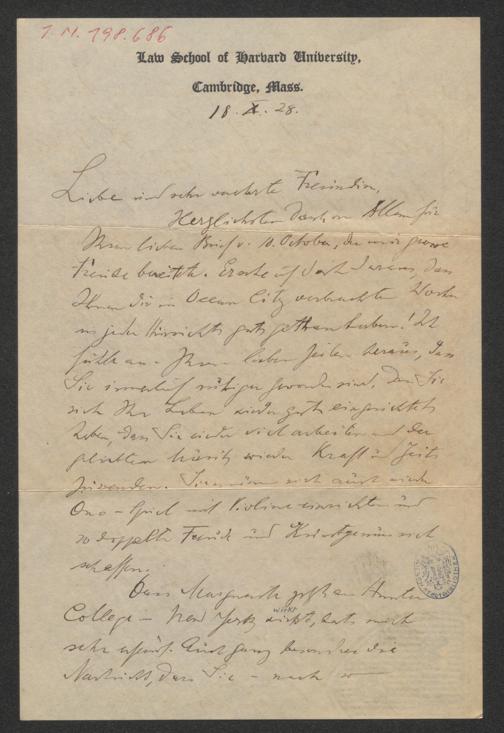 I. N. 198.686
Law School of Harvard University,
Cambridge, Mass.
18. X. 28.
Liebe und sehr verehrte Freundin,
Herzlichsten Dank vor Allem für
Ihren lieben Brief v. 10. October, der mir grosse
Freude bereitete. Ersehe ich doch daraus, dass
Ihnen die in Ocean City verbrachten Wochen
in jeder Hinsicht gut gethan haben! Ich
fühle aus Ihren lieben Zeilen heraus, dass
Sie innerlich ruhiger geworden sind, dass Sie
sich Ihr Leben wieder gut eingerichtet
haben, dass Sie wieder viel arbeiten und der
geliebten Musik wieder Kraft u. Zeit
zuwenden. Sie sich auch wieder
Duo-Spiel mit Violine einrichten und
so doppelte Freude und Kunstgenuss sich
schaffen.
Dass Marguerite jetzt am Hunter
College - New York wirkt, hat mich
sehr erfreut. Auch ganz besonders die
Nachricht, dass Sie - nach so